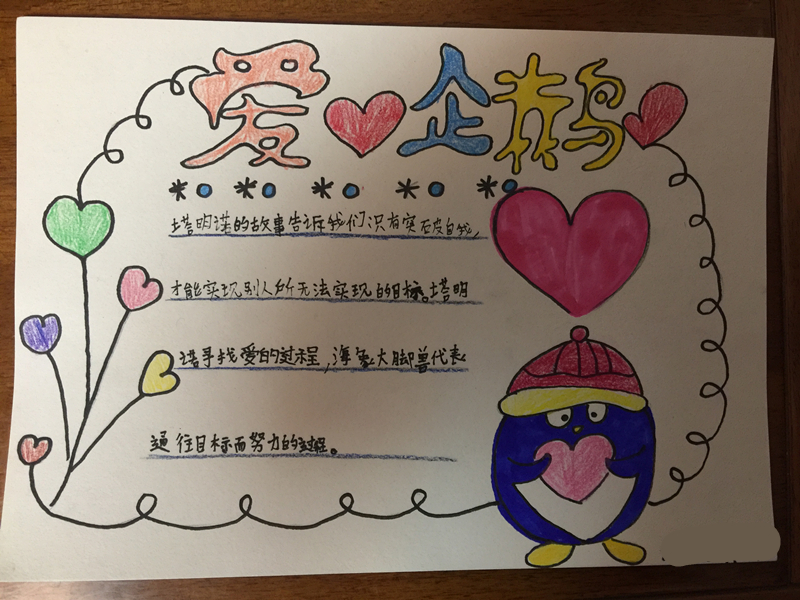 爱企鹅
塔明诺的故事告诉我们,只有实石皮自我,
才能实现别人所无法实现的目标。塔明
诺寻找爱的过程,海象大脚兽代表
通往目标而努力的过程。